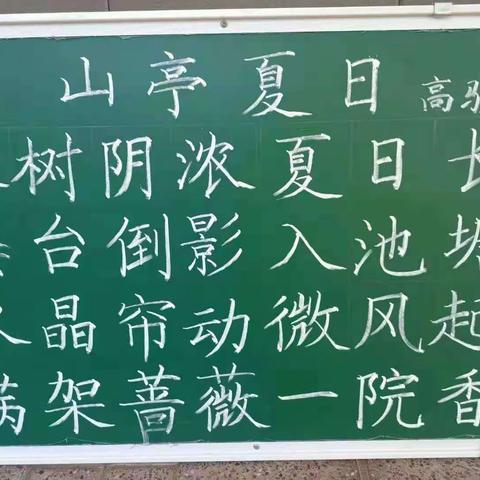 山亭夏日 高
树阴浓夏日长
台倒影入池塘
晶帘动微风起
满架蔷薇一院香